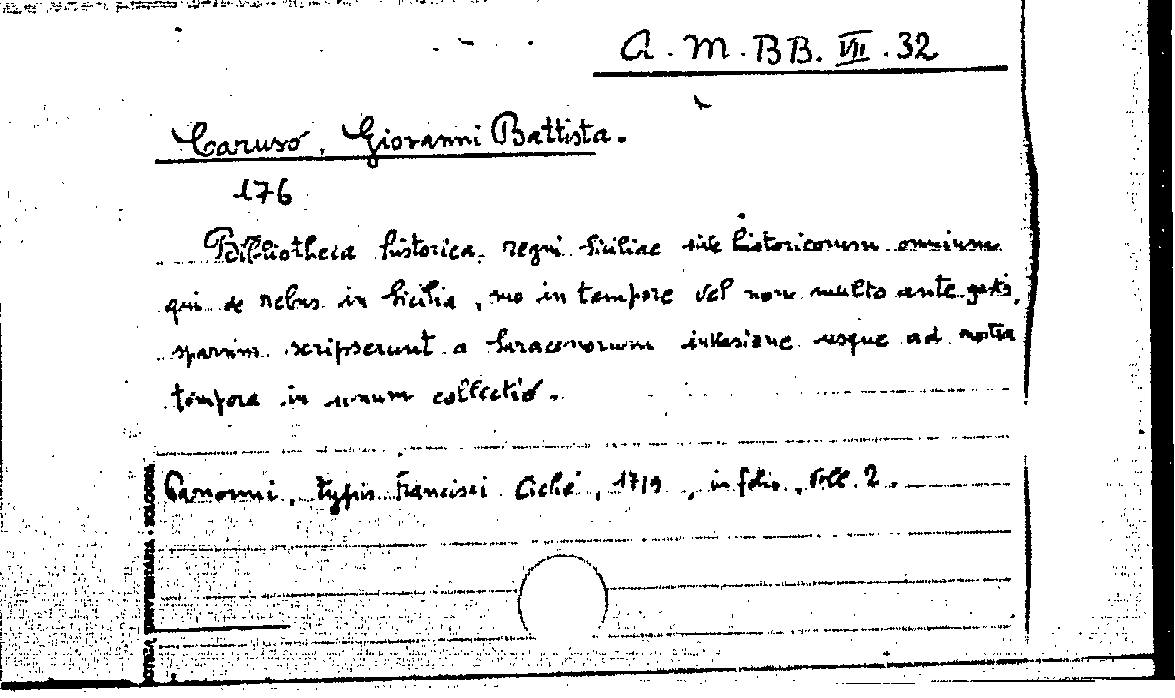 A. M. BB. VII. 32
Caruso, Giovanni Battista.
176
Bibliotheca historica, regni Siciliae sive historicorum omnium
qui de rebus in Sicilia, in tempore vel non multo ante gestis,
sparsim scripserunt a Saraconorum invasione usque ad nostra
tempora in unum collectio.
Panormi, typis Francisci Cichè, 1719, in folio, Voll. 2.
UNIVERSITARIA - BOLOGNA